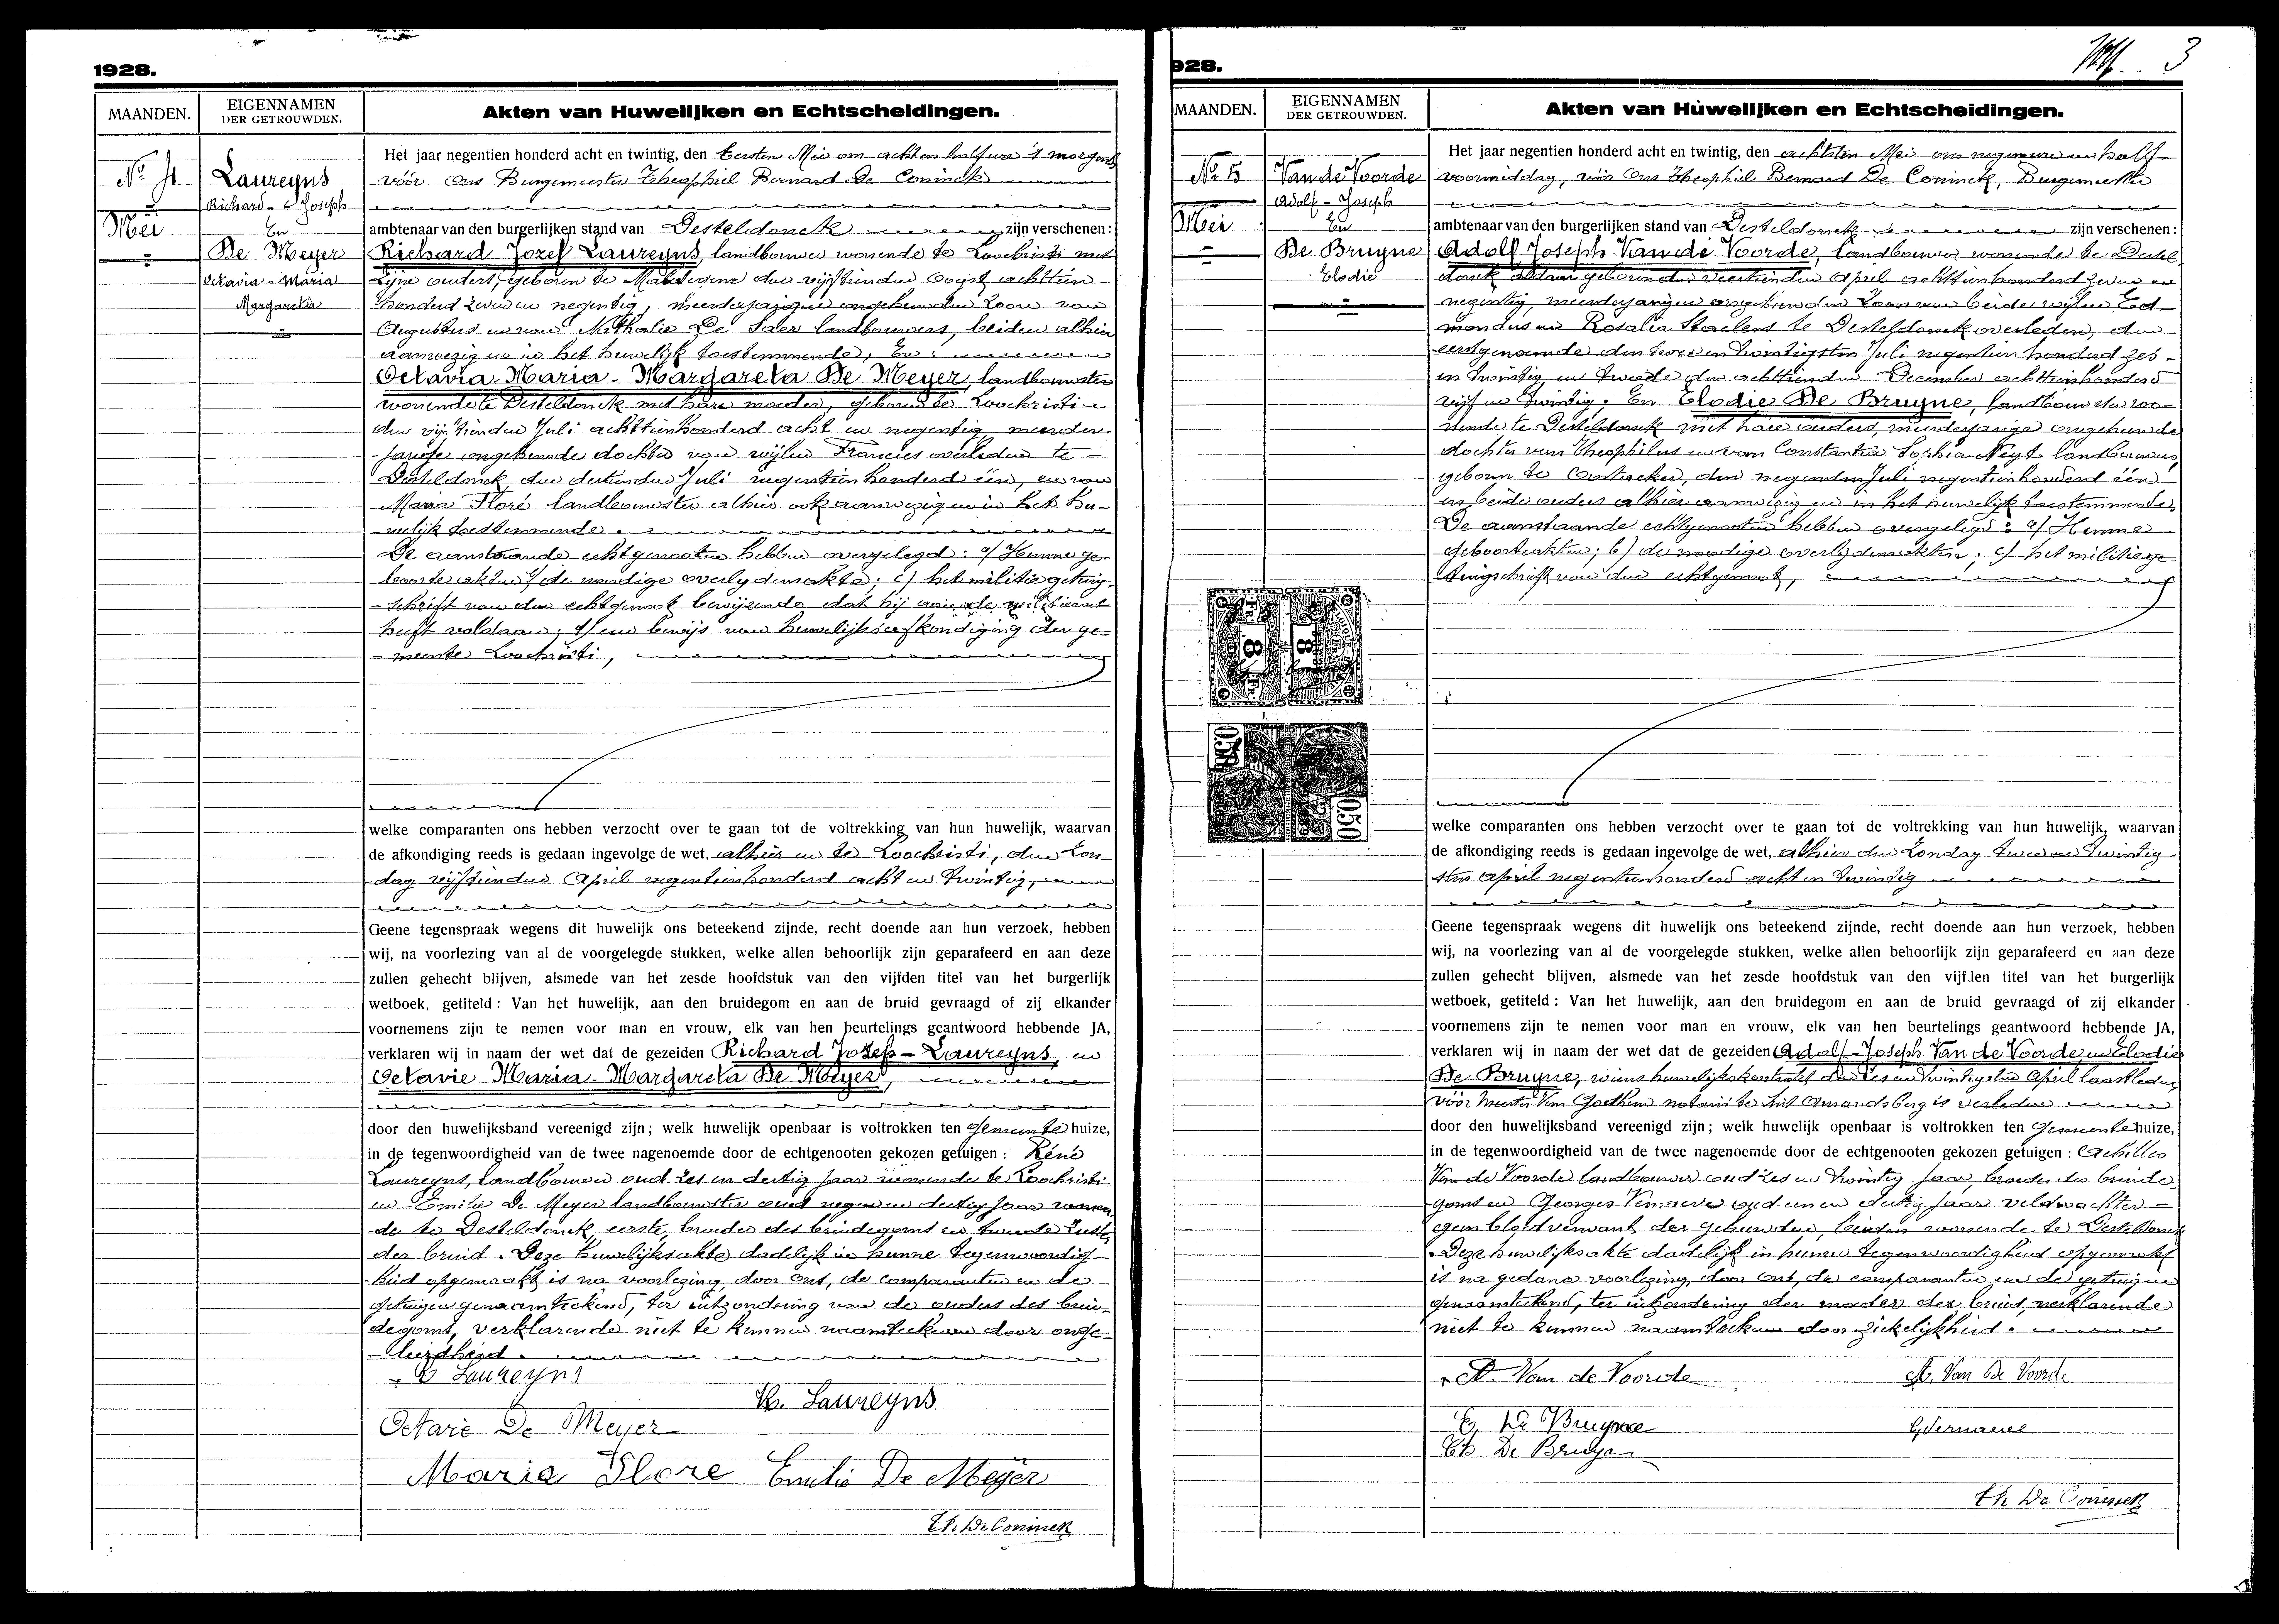 1928.
MAANDEN.
EIGENNAMEN
DER GETROUWDEN.
Akten van Huwelijken en Echtscheidingen.
Nr 4
Mei
Laureyns
Richard - Joseph
En
De Meyer
Octavia - Maria
Margareta
Het jaar negentien honderd acht en twintig, den Eersten Mei om acht en half ure 's morgends
vóór Ons Burgemeester Theophiel Bernard De Coninck
ambtenaar van den burgerlijken stand van Desteldonck zijn verschenen:
Richard Jozef Laureyns, landbouwer wonende te Loochristi met
zijne ouders, geboren te den vijftienden Oogst achttien
honderd zeven en negentig, meerderjarigen ongehuwden zoon van
Augustus en van Nathalie De Saer landbouwers, beiden alhier
aanwezig en in het huwelijk toestemmende, En:
Octavia-Maria-Margareta De Meyer, landbouwster
wonende te Desteldonck met hare moeder, geboren te Loochristi
den vijftienden Juli achttienhonderd acht en negentig meerder-
jarige ongehuwde dochter van wijlen Francies overleden te
Desteldonck den dertienden Juli negentienhonderd één, en van
Maria Floré landbouwster alhier ook aanwezig en in het hu-
welijk toestemmende.
De aanstaande echtgenooten hebben overgelegd: a/ Hunne ge-
boorteakten; b/ de noodige overlijdensakte; c/ het militiegetuig-
schrift van den echtgenoot bewijzende dat hij aan de militiewet
heeft voldaan; d/ een bewijs van huwelijksafkondiging der ge-
meente Loochristi,
welke comparanten ons hebben verzocht over te gaan tot de voltrekking van hun huwelijk, waarvan
de afkondiging reeds is gedaan ingevolge de wet, alhier en te Loochristi, den Zon-
dag vijftienden April negentienhonderd acht en twintig,
Geene tegenspraak wegens dit huwelijk ons beteekend zijnde, recht doende aan hun verzoek, hebben
wij, na voorlezing van al de voorgelegde stukken, welke allen behoorlijk zijn geparafeerd en aan deze
zullen gehecht blijven, alsmede van het zesde hoofdstuk van den vijfden titel van het burgerlijk
wetboek, getiteld: Van het huwelijk, aan den bruidegom en aan de bruid gevraagd of zij elkander
voornemens zijn te nemen voor man en vrouw, elk van hen beurtelings geantwoord hebbende JA,
verklaren wij in naam der wet dat de gezeiden Richard Jozef - Laureyns, en
Octavie Maria-Margareta De Meyer,
door den huwelijksband vereenigd zijn; welk huwelijk openbaar is voltrokken ten Gemeentehuize,
in de tegenwoordigheid van de twee nagenoemde door de echtgenooten gekozen getuigen: Réné
Laureyns, landbouwer oud zes en dertig jaar wonende te Loochristi
en Emilie De Meyer landbouwster oud negen en dertig jaar wonen-
de te Desteldonck, eerste, broeder des bruidegoms en tweede zuster
der bruid. Deze huwelijksakte dadelijk in hunne tegenwoordig-
heid opgemaakt is na voorlezing door ons, de comparanten en de
getuigen genaamteekend, ter uitzondering van de ouders des brui-
degoms, verklarende niet te kunnen naamteekenen door onge-
leerdheid.
R Laureyns
R. Laureyns
Octavie De Meyer
Maria Flore Emilie De Meyer
Th. De Coninck
928.
3
MAANDEN.
EIGENNAMEN
DER GETROUWDEN.
Akten van Huwelijken en Echtscheidingen.
Nr 5
Mei
Van de Voorde
Adolf - Joseph
En
De Bruyne
Elodie
Het jaar negentien honderd acht en twintig, den achtsten Mei om negen ure en half
voormiddag, vóór Ons Theophiel Bernard De Coninck, Burgemeester
ambtenaar van den burgerlijken stand van Desteldonck zijn verschenen:
Adolf Joseph Van de Voorde, landbouwer wonende te Destel-
donck aldaar geboren den veertienden April achttienhonderd zeven en
negentig, meerderjarigen ongehuwden zoon van beide wijlen Ed-
mondus en Rosalia Staelens te Desteldonck overleden, den
eerstgenaamde den twee en twintigsten Juli negentien honderd zes-
en twintig en tweede den achttienden December achttienhonderd
vijf en twintig. En Elodie De Bruyne, landbouwster wo-
nende te Desteldonck met hare ouders, meerderjarige ongehuwde
dochter van Theophilus en van Constantia Sophia Neyt landbouwers,
geboren te Oostacker, den negenden Juli negentienhonderd één
en beide ouders alhier aanwezig en in het huwelijk toestemmende.
De aanstaande echtgenooten hebben overgelegd: a/ Hunne
geboorteakten; b/ de noodige overlijdensakten; c/ het militiege-
tuigschrift van den echtgenoot,
8 Fr
8 Fr
0.50
0.50
welke comparanten ons hebben verzocht over te gaan tot de voltrekking van hun huwelijk, waarvan
de afkondiging reeds is gedaan ingevolge de wet, alhier den Zondag twee en twintig-
sten April negentienhonderd acht en twintig
Geene tegenspraak wegens dit huwelijk ons beteekend zijnde, recht doende aan hun verzoek, hebben
wij, na voorlezing van al de voorgelegde stukken, welke allen behoorlijk zijn geparafeerd en aan deze
zullen gehecht blijven, alsmede van het zesde hoofdstuk van den vijfden titel van het burgerlijk
wetboek, getiteld: Van het huwelijk, aan den bruidegom en aan de bruid gevraagd of zij elkander
voornemens zijn te nemen voor man en vrouw, elk van hen beurtelings geantwoord hebbende JA,
verklaren wij in naam der wet dat de gezeiden Adolf-Joseph Van de Voorde, en Elodie
De Bruyne, wiens huwelijkskontrakt den zes en twintigsten April laatstleden
vóór Meester Van Godthem notaris te Sint Amandsberg is verleden
door den huwelijksband vereenigd zijn; welk huwelijk openbaar is voltrokken ten Gemeentehuize,
in de tegenwoordigheid van de twee nagenoemde door de echtgenooten gekozen getuigen: Achilles
Van de Voorde landbouwer oud zes en twintig jaar, broeder des bruide-
goms en Georges Vermaere oud een en dertig jaar veldwachter
geen bloedverwant der gehuwden, beiden wonende te Desteldonck
Deze huwelijksakte dadelijk in hunne tegenwoordigheid opgemaakt
is na gedane voorlezing, door ons, de comparanten en de getuigen
genaamteekend, ter uitzondering der moeder der bruid, verklarende
niet te kunnen naamteekenen door ziekelijkheid.
A. Van de Voorde
A. Van De Voorde
E. De Bruyne
G. Vermaere
Th De Bruyne
Th De Coninck